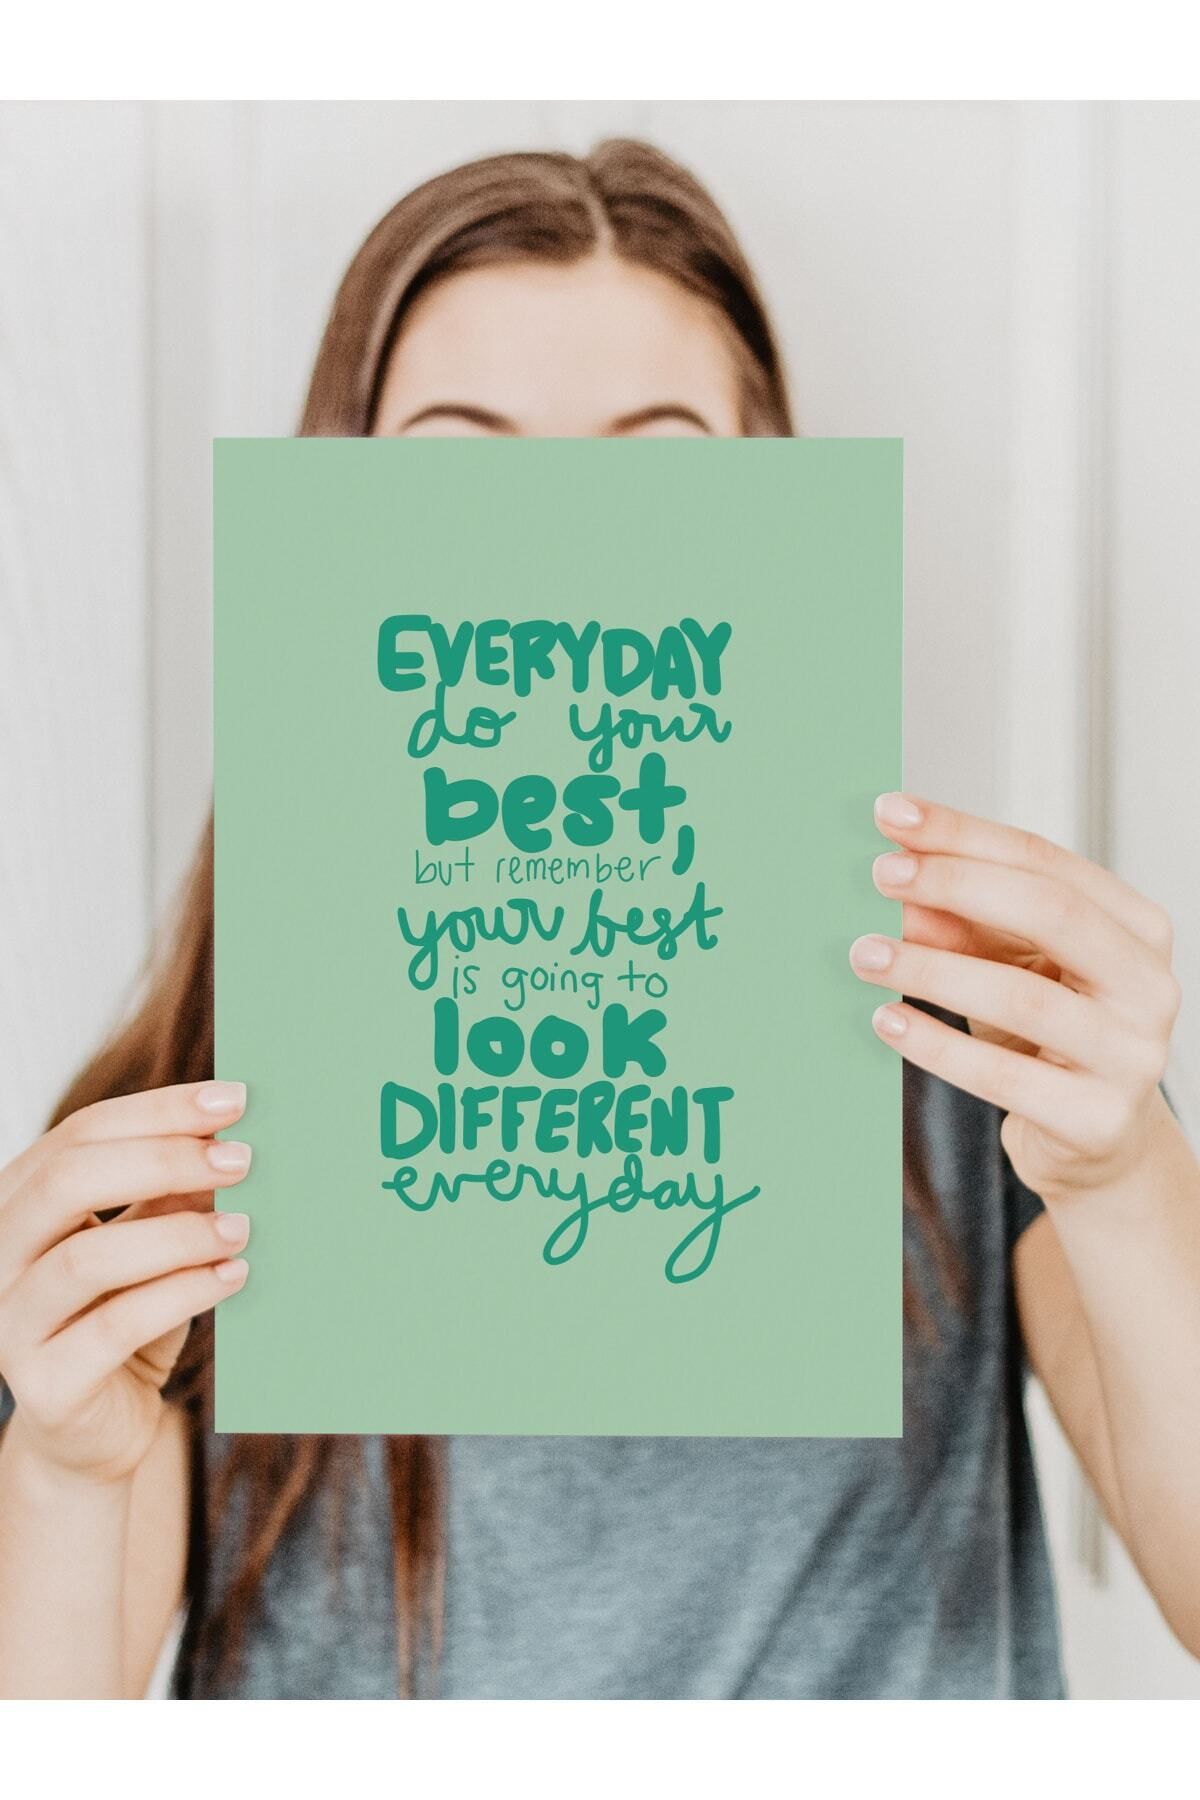 EVERYDAY
do your
best,
but remember
your best
is going to
look
DIFFERENT
everyday